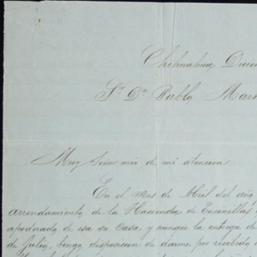 Chihuahua Diciem
Sr. Dn. Pablo Mart
Muy Señor mio de mi atencion
En el mes de Abril del año
arrendamiento de la Hacienda de Encinillas
apoderado de esa su Casa, y aunque la entrega de
de Julio, tengo disposicion de darme por recibido